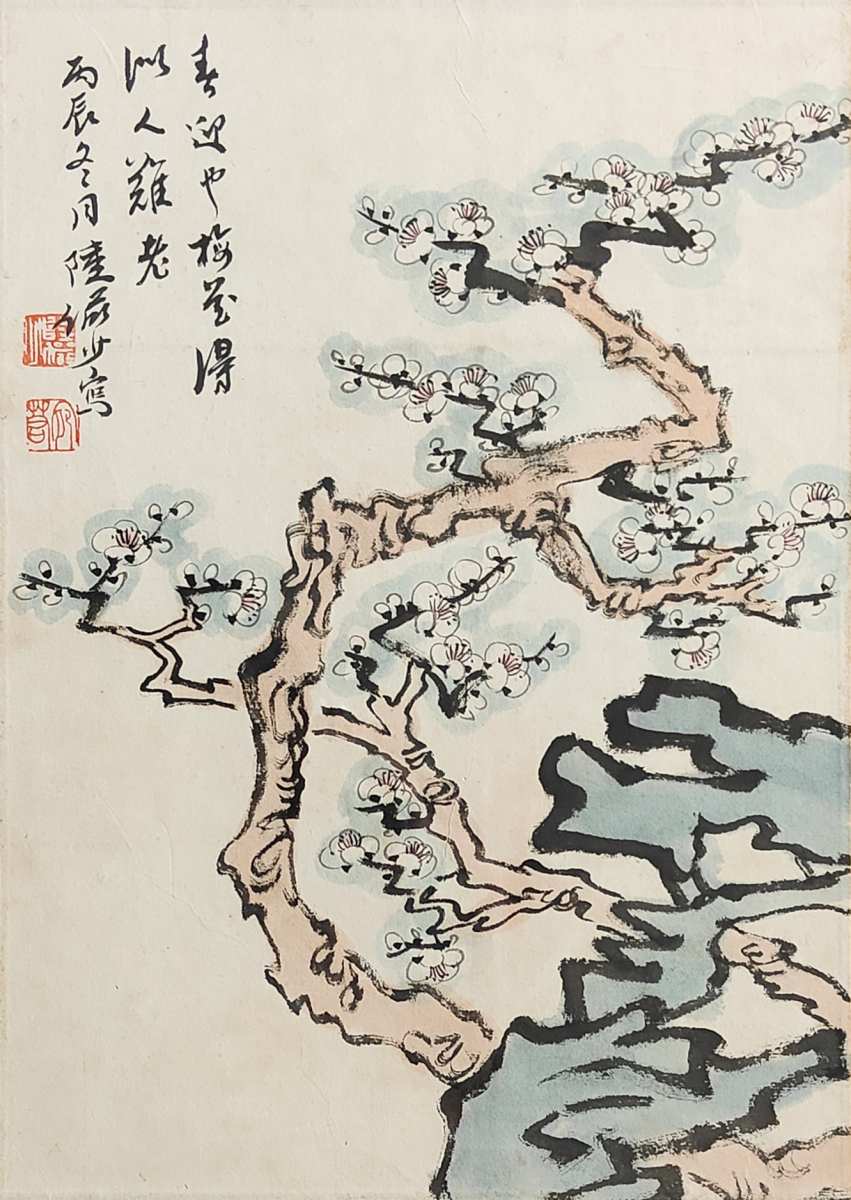 春迎也梅花得
似人難老
丙辰冬月陸儼少寫